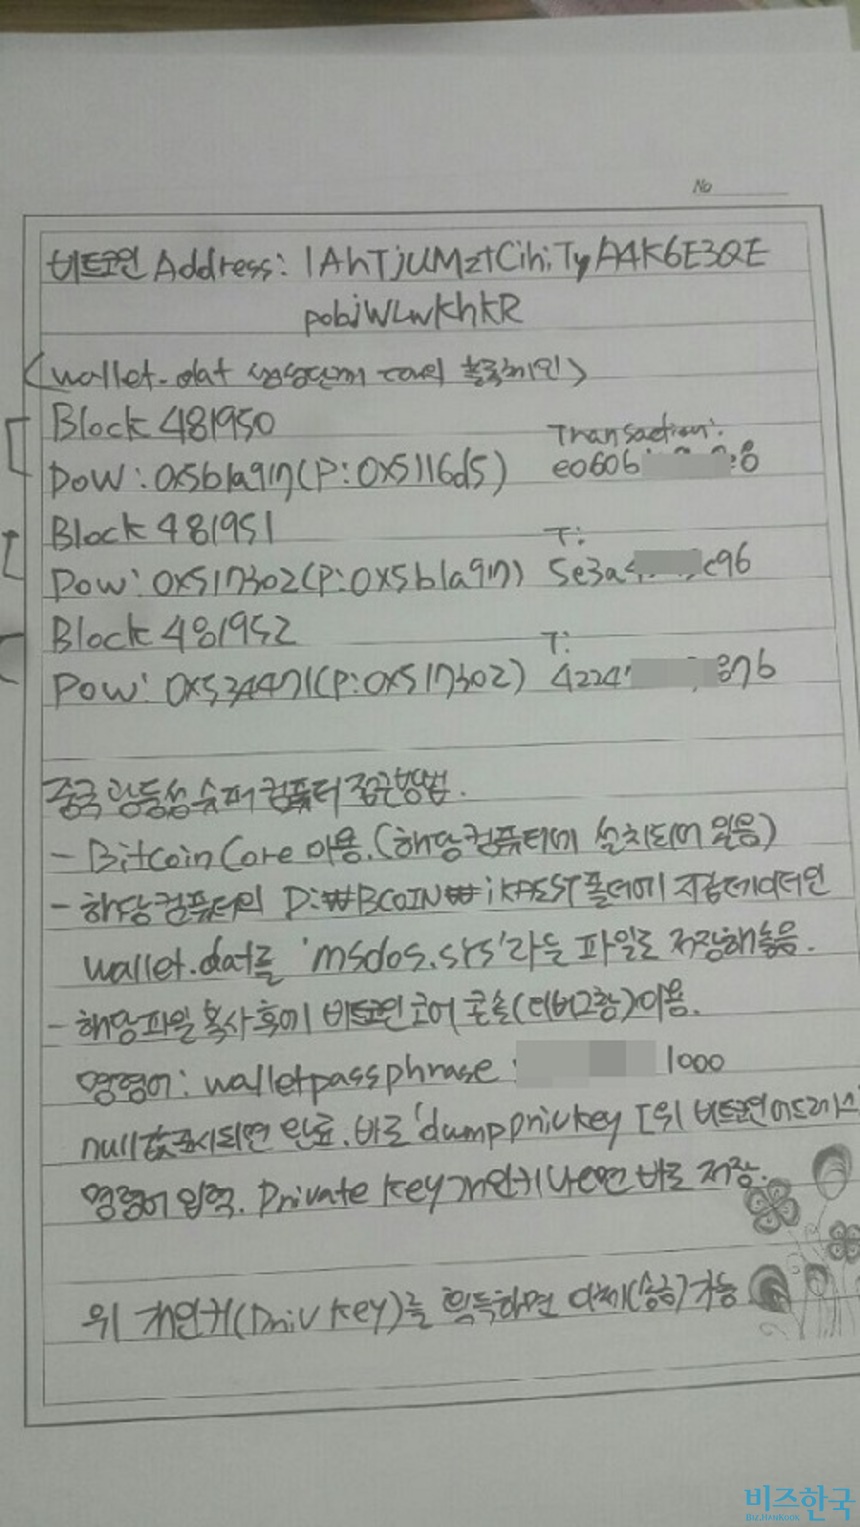 No
비트코인 Address: 1AhTjUMztCihiTyA4K6E3QE
pobjWLwKhkR
(wallet.dat 생성단계 대의 블록체인)
Block 481950
Transaction:
POW: 0x5b1a917(P:0x5116d5) e0606 e8
Block 481951
T:
Pow: 0x517302(P:0x5b1a917) 5e3a4 c96
Block 481952
T:
Pow: 0x534471(P:0x517302) 4224 876
중국 광동성 슈퍼컴퓨터 접근방법.
- BitcoinCore 이용.(해당컴퓨터에 설치되어 있음)
- 해당컴퓨터의 D:₩BCOIN₩ 폴더에 지갑데이터인
wallet.dat를 'msdos.sys'라는 파일로 저장해놓음.
- 해당파일 복사후에 비트코인 코어 콘솔(디버그창)이용.
명령어: walletpassphrase 1000
null값표시되면 완료. 바로 'dumpprivkey [위 비트코인어드레스
명령어 입력. Private Key개인키 나오면 바로 저장.
위 개인키(Priv Key)를 획득하면 이체(송금)가능
비즈한국
BIZHANKOOK